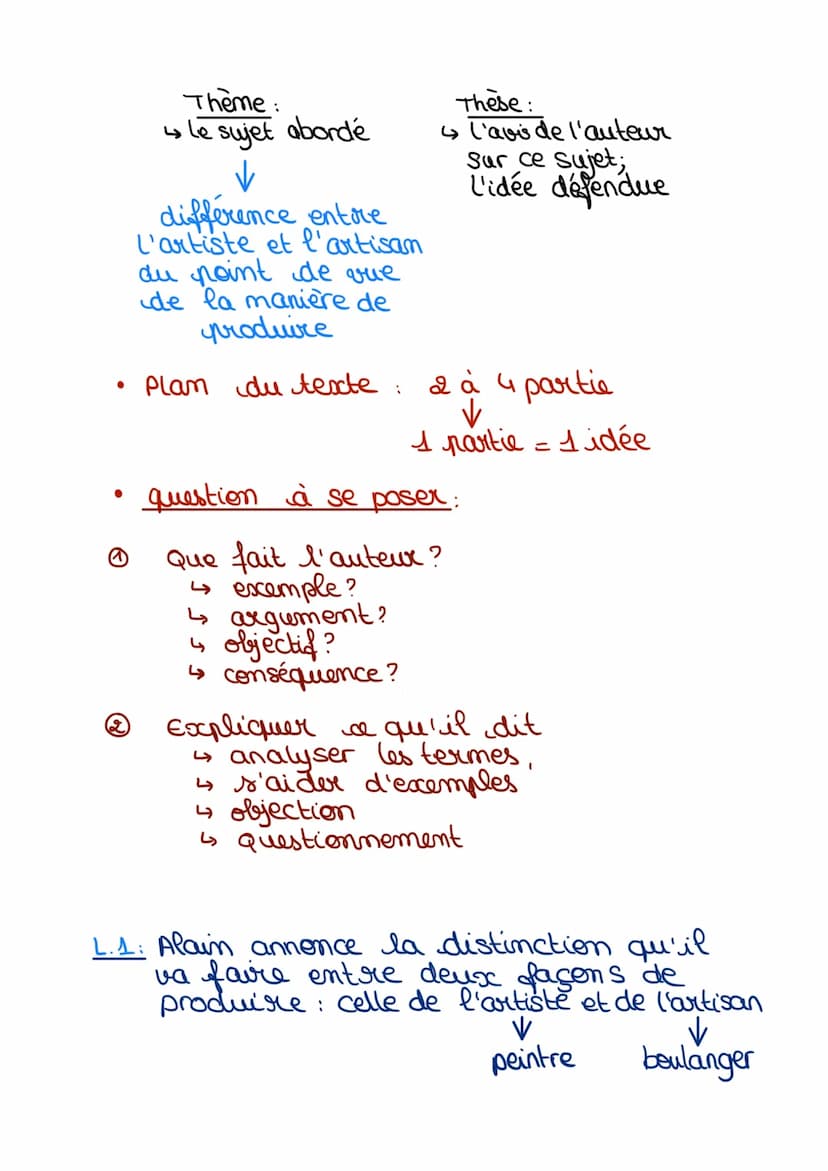 Thème :
↳ le sujet abordé
↓
différence entre
l'artiste et l'artisan
du point de vue
de la manière de
produire
Thèse :
↳ l'avis de l'auteur
sur ce sujet;
l'idée défendue
• Plan du texte : 2 à 4 partie
↓
1 partie = 1 idée
• question à se poser :
① Que fait l'auteur ?
↳ exemple ?
↳ argument ?
↳ objectif ?
↳ conséquence ?
② Expliquer ce qu'il dit
↳ analyser les termes,
↳ s'aider d'exemples
↳ objection
↳ questionnement
L.1 : Alain annonce la distinction qu'il
va faire entre deux façons de
produire : celle de l'artiste et de l'artisan
↓ ↓
peintre boulanger